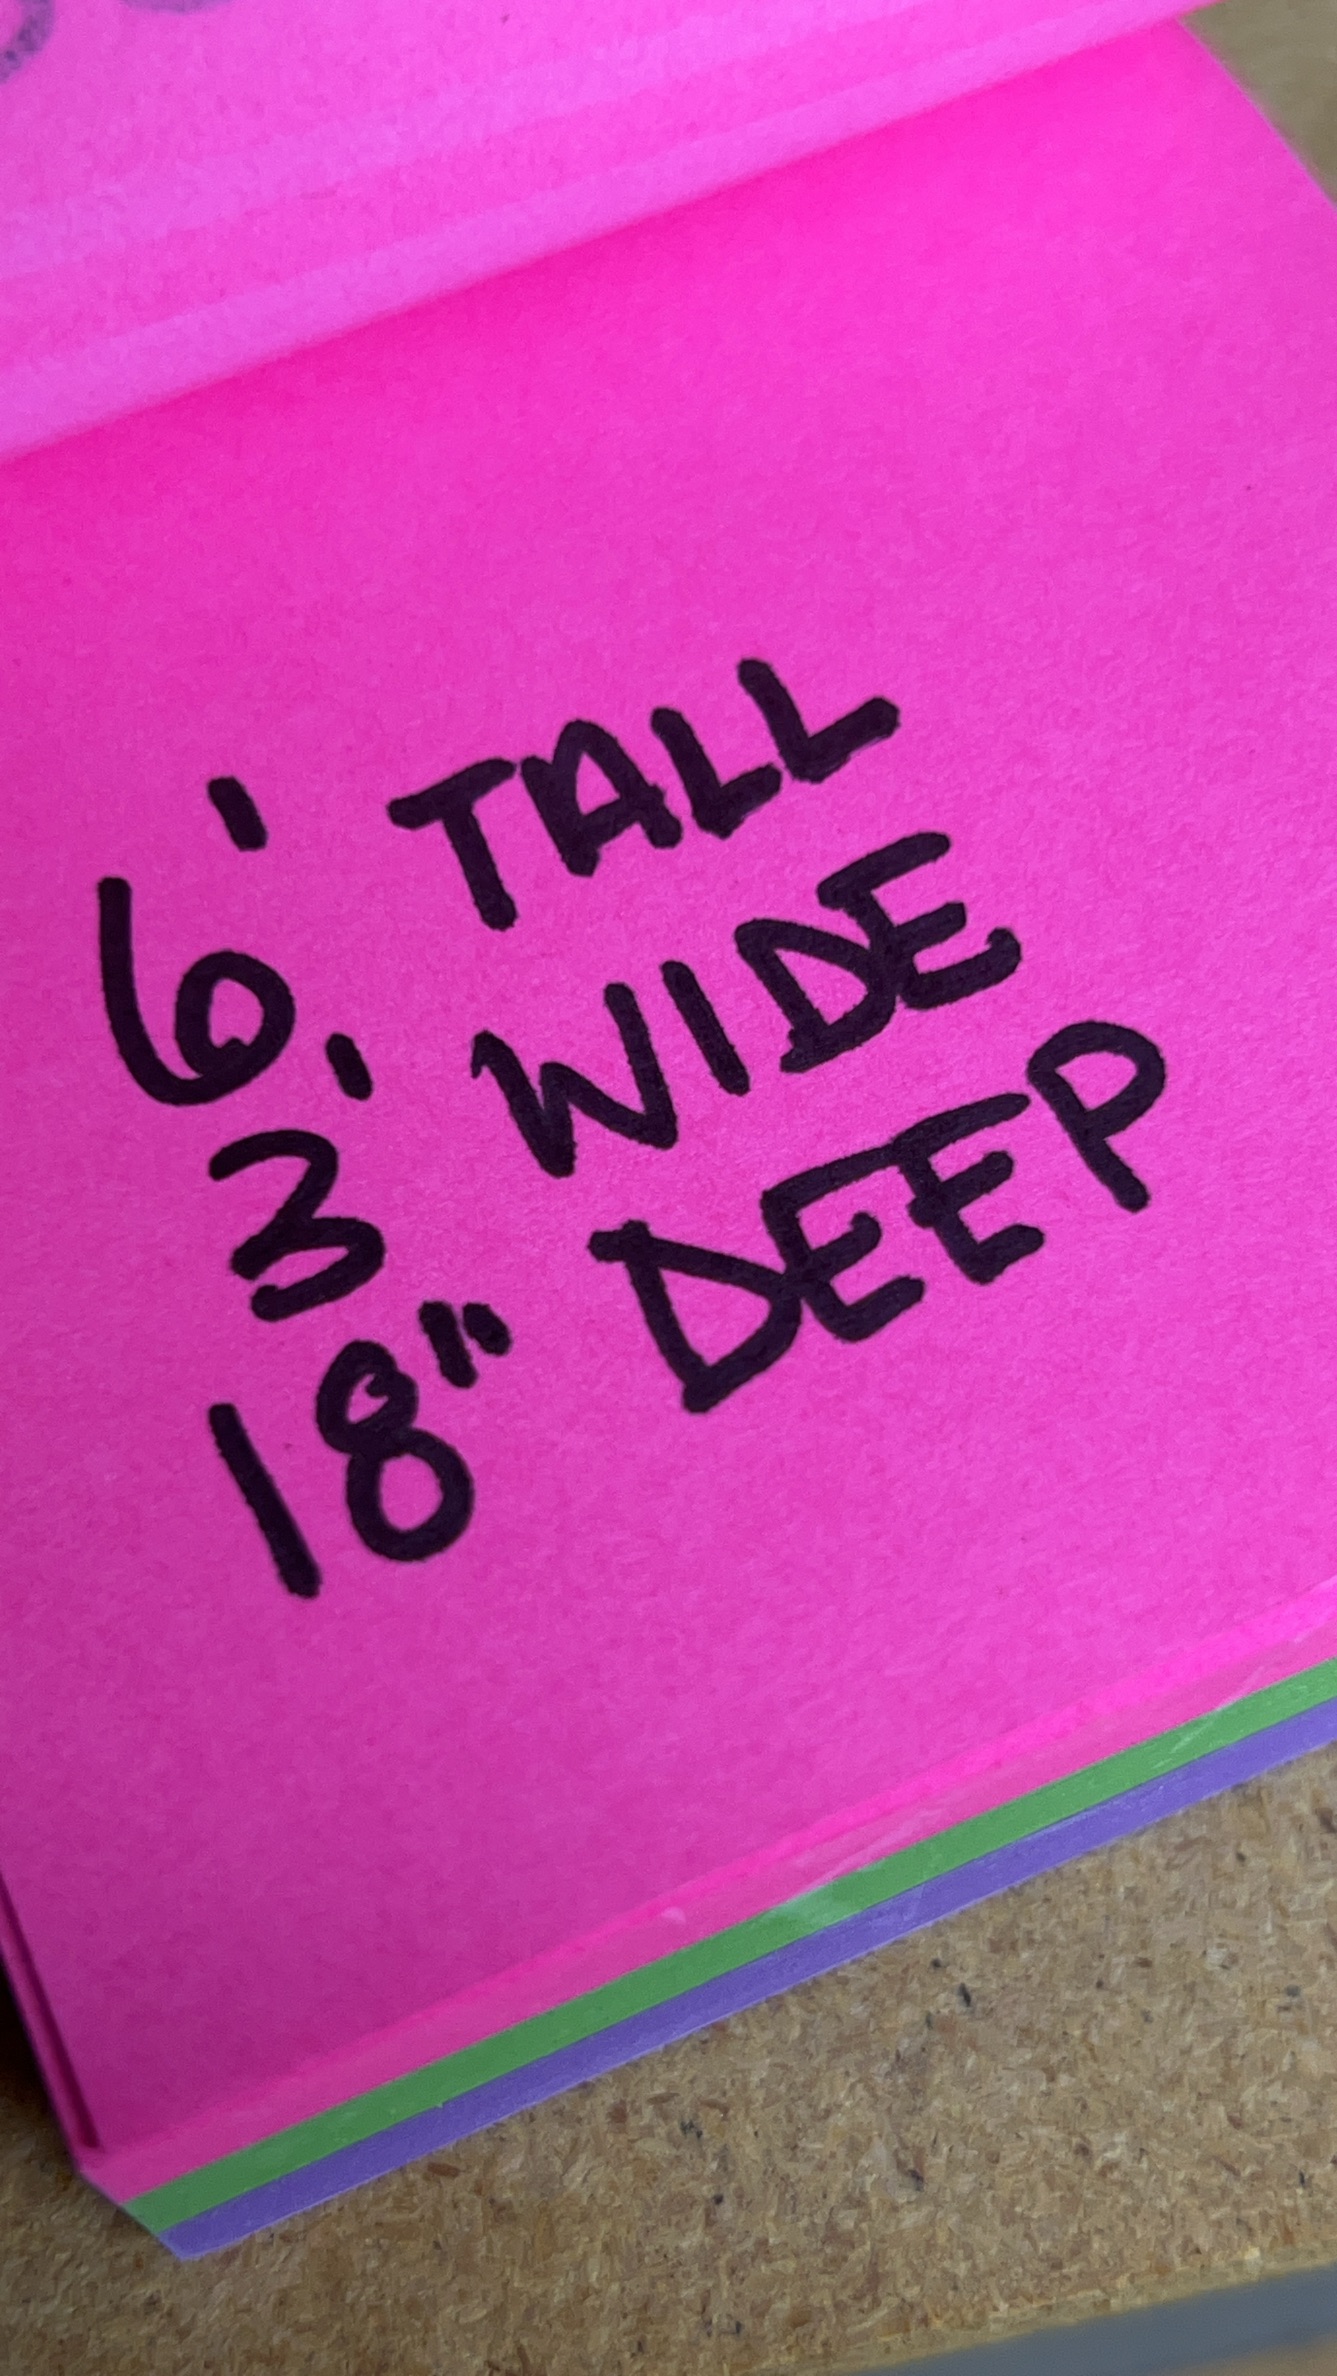 6' TALL
3' WIDE
18" DEEP